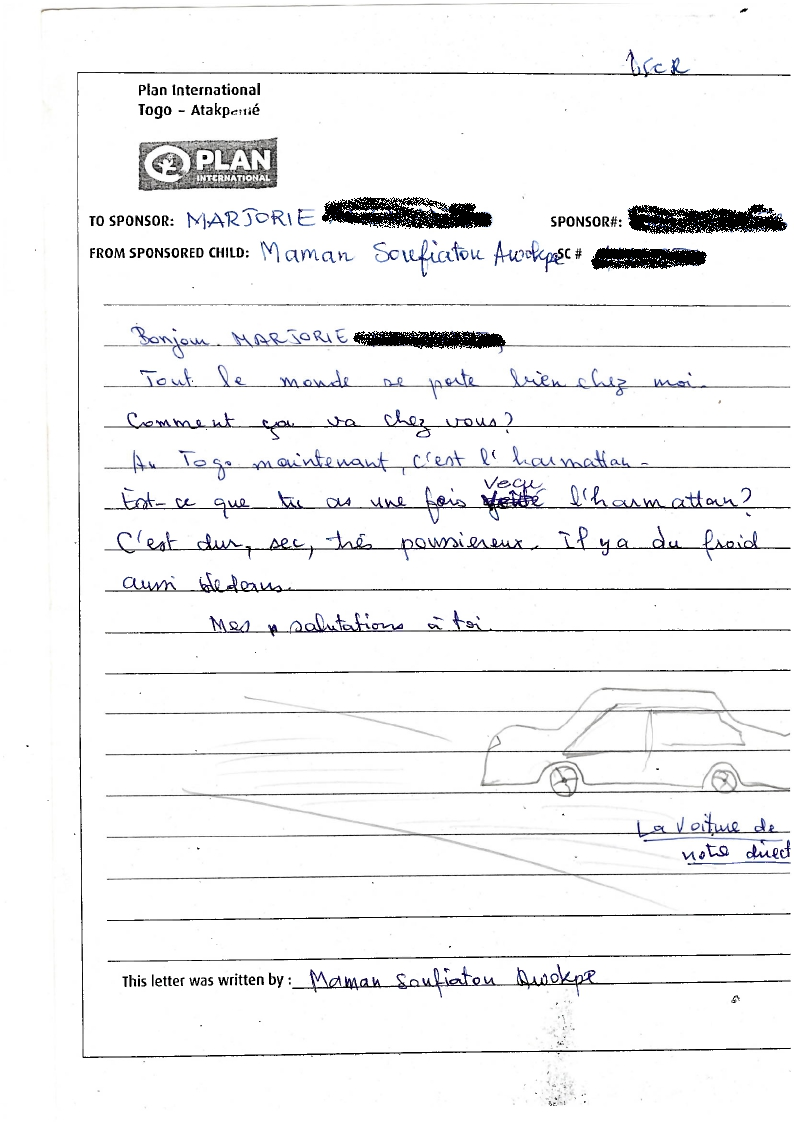 Plan International
Togo - Atakpamé
PLAN
INTERNATIONAL
TO SPONSOR: MARJORIE SPONSOR#:
FROM SPONSORED CHILD: Maman Soufiatou Awokpe SC #
Bonjour MARJORIE
Tout le monde se porte bien chez moi.
Comment ça va chez vous?
Au Togo maintenant, c'est l'harmattan -
Est-ce que tu as une fois veçu l'harmattan?
C'est dur, sec, très poussiereux. Il y a du froid
aussi dedans.
Mes salutations à toi.
La voiture de
notre direct
This letter was written by : Maman Soufiatou Awokpe